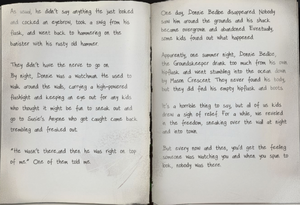 As usual, he didn't say anything. He just looked
and cocked an eyebrow, took a swig from his
flask, and went back to hammering on the
banister with his rusty old hammer.
They didn't have the nerve to go on.
By night, Donnie was a watchman. He used to
walk around the walls, carrying a high-powered
flashlight and keeping an eye out for any kids
who thought it might be fun to sneak out and
go to Susie's. Anyone who got caught came back
trembling and freaked out.
"He wasn't there, and then he was right on top
of me." One of them told me.
One day, Donnie Bedloe disappeared. Nobody
saw him around the grounds and his shack
became overgrown and abandoned. Eventually,
some kids found out what happened.
Apparently, one summer night, Donnie Bedloe,
the Groundskeeper drank too much from his
hipflask and went stumbling into the ocean down
by Mason Crescent. They never found his body,
but they did find his empty hipflask and boots.
It's a horrible thing to say, but all of us kids
drew a sigh of relief. For a while, we reveled
in the freedom, sneaking over the wall at night
and into town.
But every now and then, you'd get the feeling
someone was watching you and when you spun to
look, nobody was there.